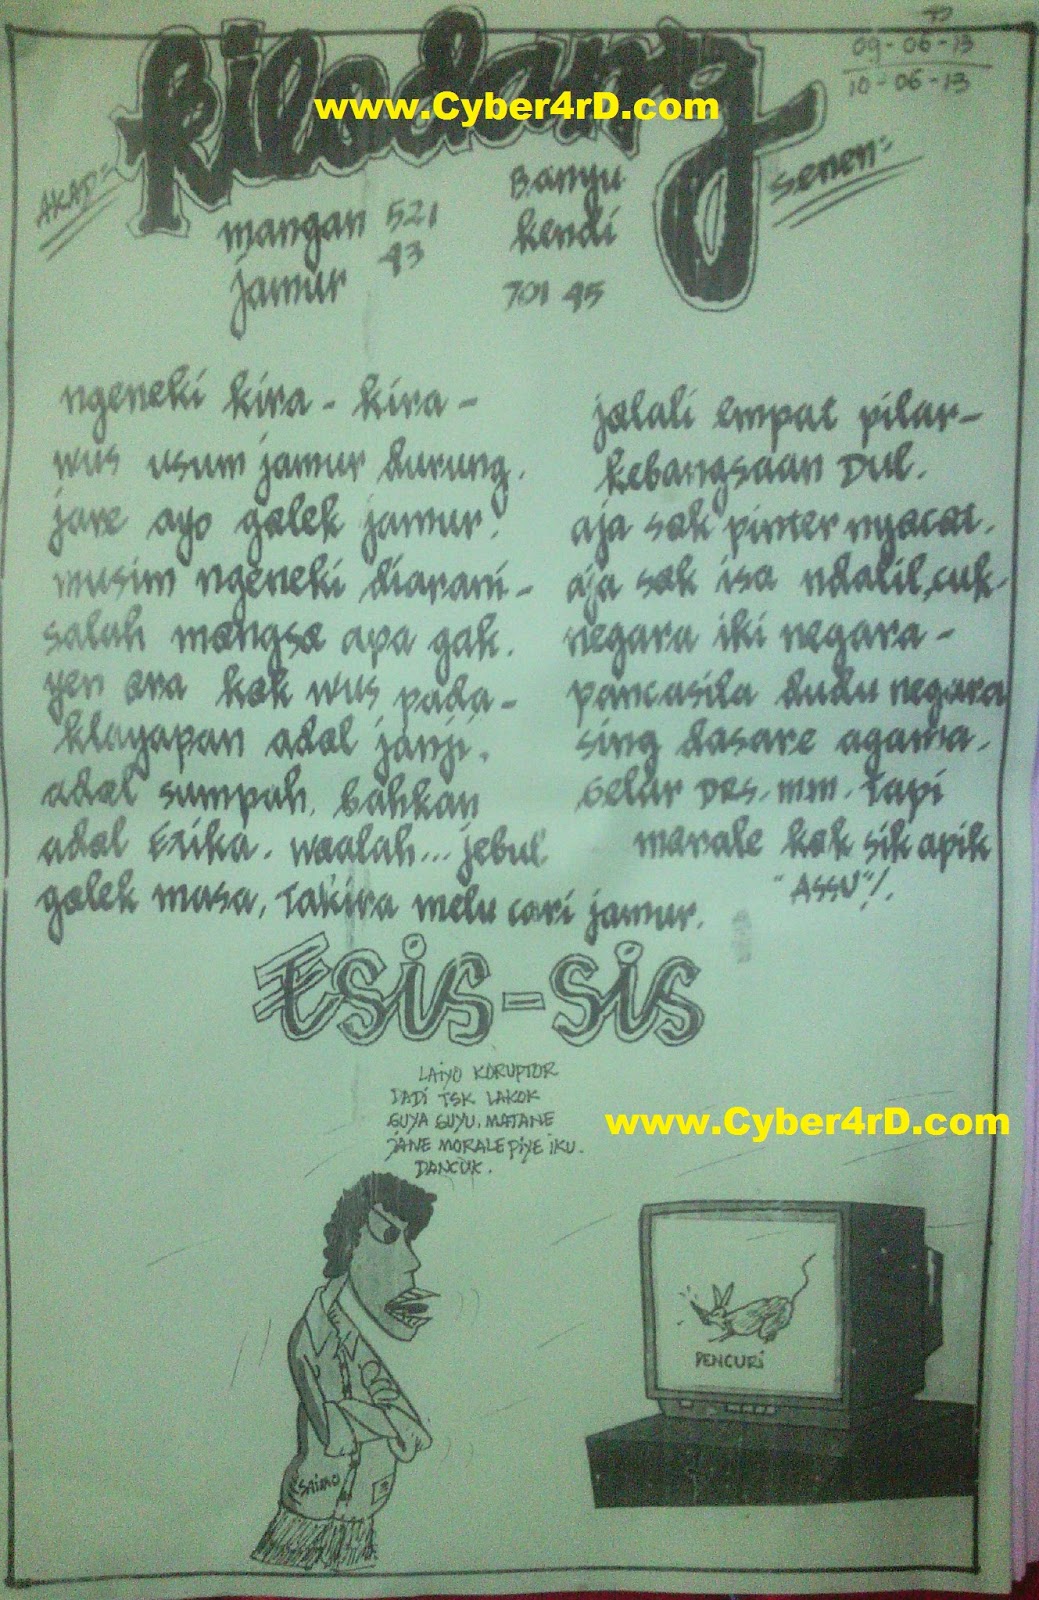 kilodang
www.Cyber4rD.com
09-06-13
10-06-13
AKAD=
mangan 521
jamur 43
Banyu
kendi
701 45
Senen=
ngeneki kira-kira-
wus usum jamur durung.
jare ayo golek jamur.
musim ngeneki diarani-
salah mongso apa gak.
yen ora kok wus pada-
klayapan adol janji.
adol sumpah. bahkan
adol Etika. woalah... jebul
golek masa, Takira melu cari jamur.
jalali empat pilar-
kebangsaan DUL.
aja sok pinter nyacat.
aja sok isa ndalil, cuk.
negara iki negara-
pancasila dudu negara
sing dasare agama.
Gelar DRS. MM. Tapi
morale kok sik apik
"ASSU"!.
Esis-sis
LAIYO KORUPTOR
DADI TSK LAKOK
GUYA GUYU. MATANE
JANE MORALE PIYE IKU.
DANCUK.
www.Cyber4rD.com
PENCURI